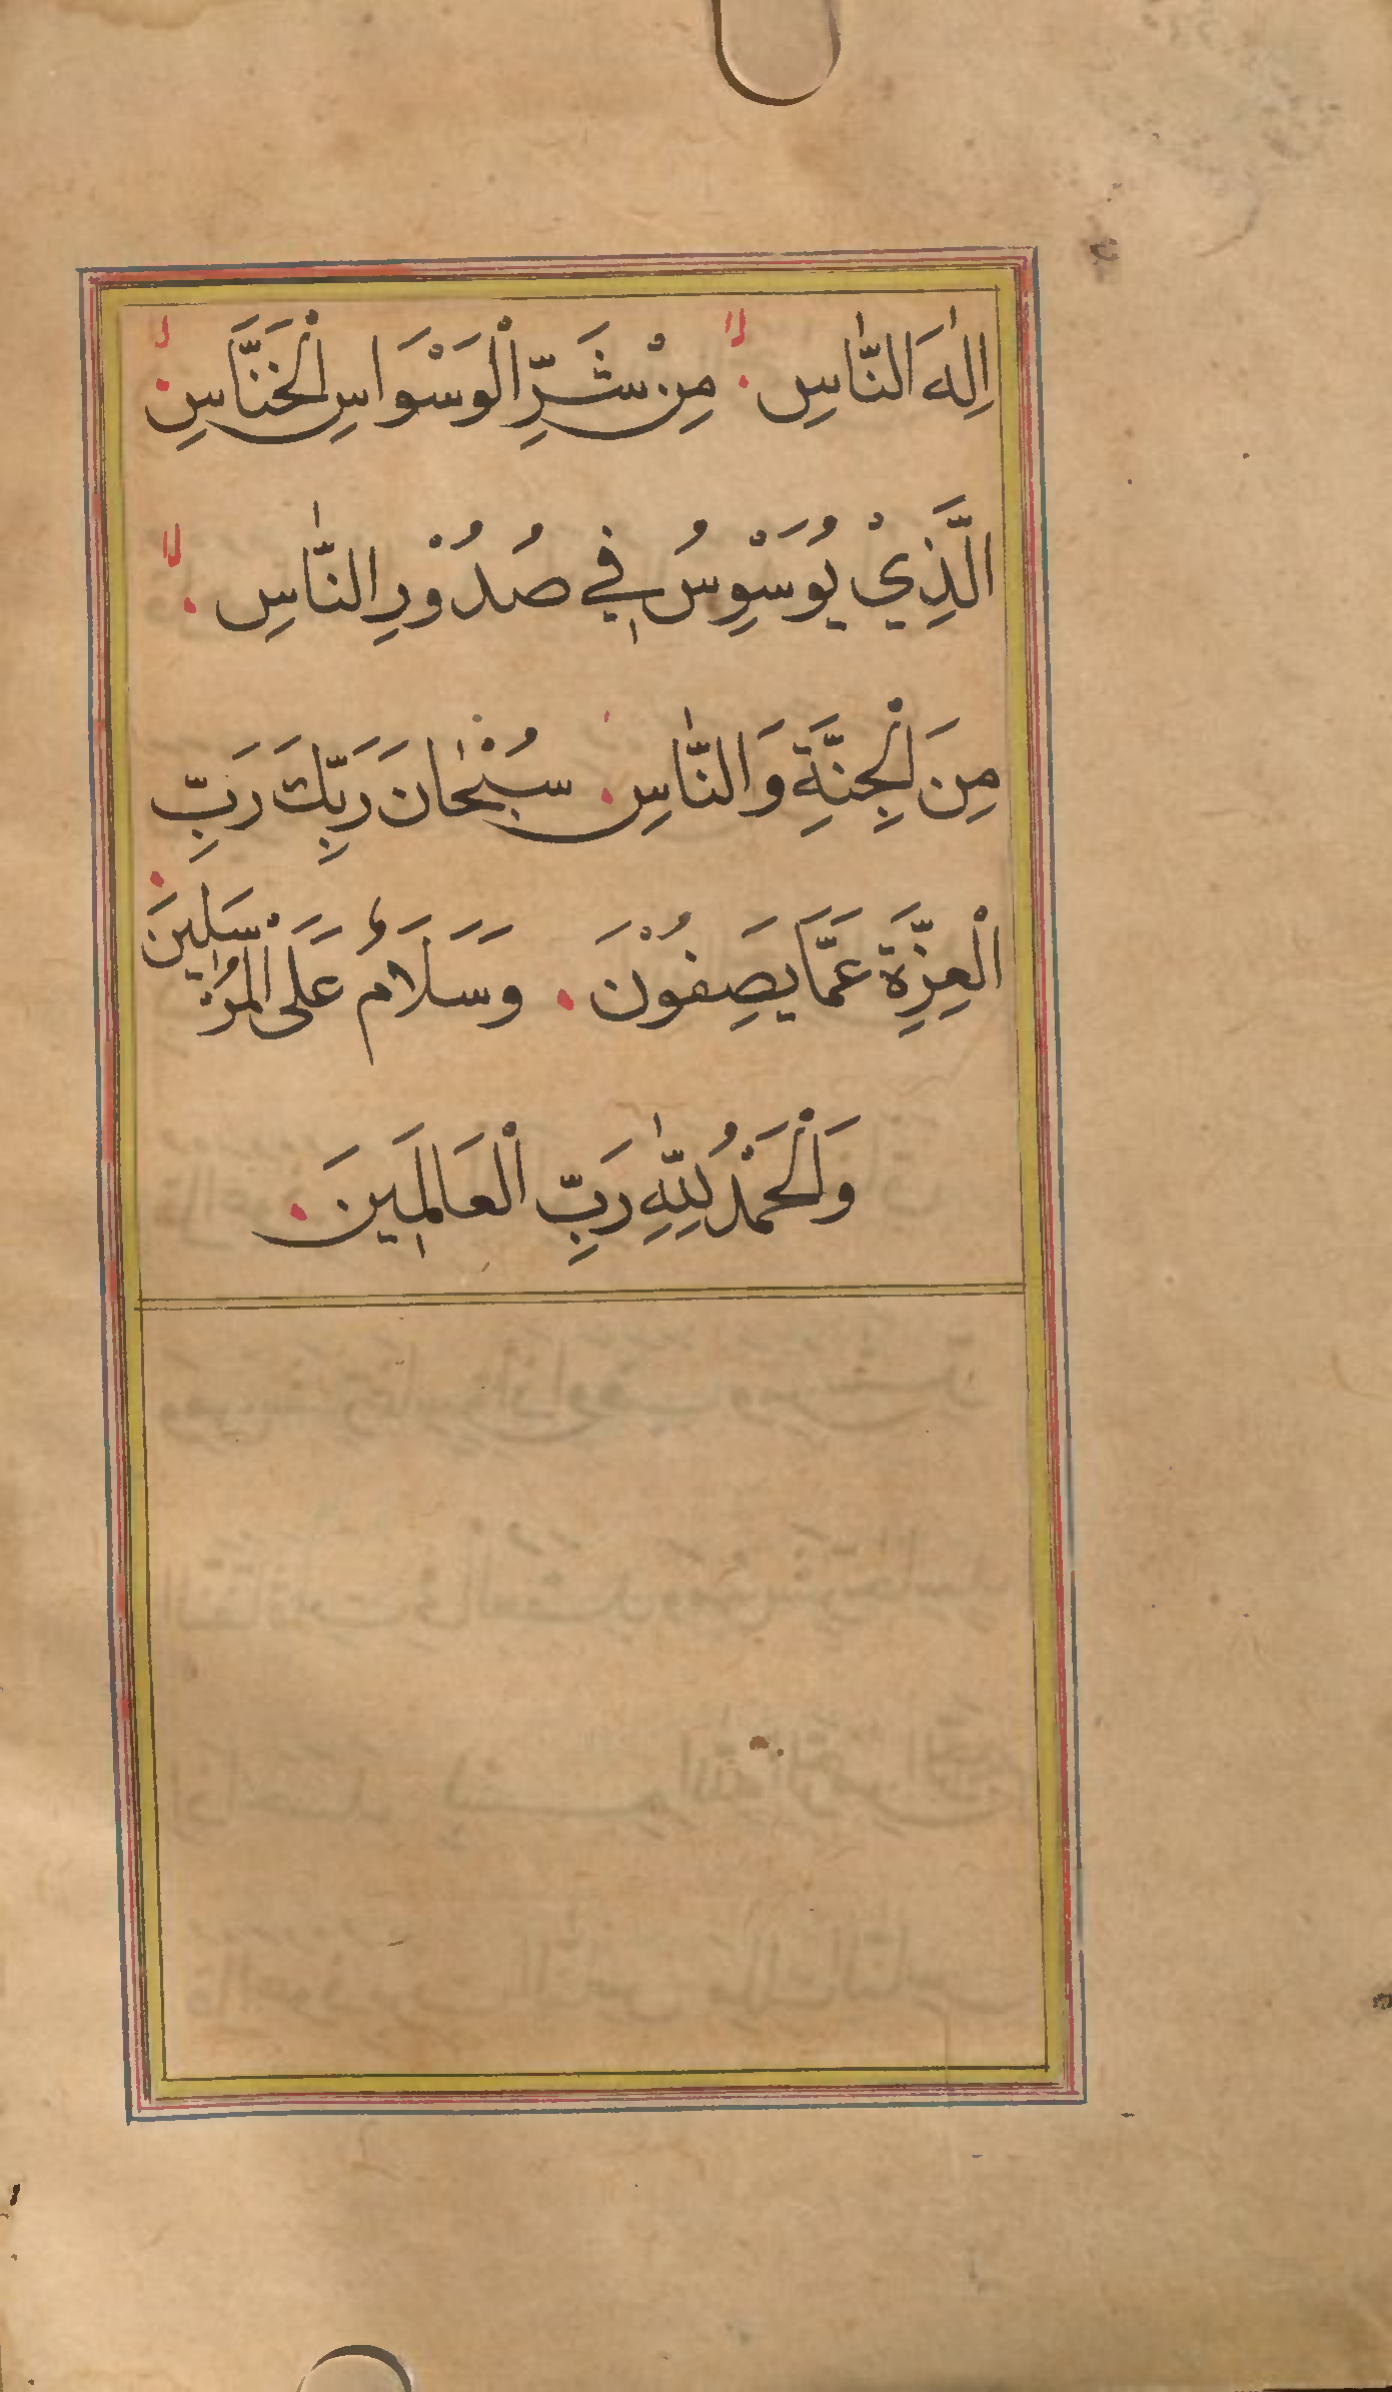 اِلٰهِ النَّاسِ ۙ مِنْ شَرِّ الْوَسْوَاسِ الْخَنَّاسِ ۙ
الَّذِيْ يُوَسْوِسُ فِي صُدُوْرِ النَّاسِ ۙ
مِنَ الْجِنَّةِ وَالنَّاسِ سُبْحَانَ رَبِّكَ رَبِّ
الْعِزَّةِ عَمَّا يَصِفُوْنَ وَسَلَامٌ عَلَى الْمُرْسَلِينَ
وَالْحَمْدُ لِلّٰهِ رَبِّ الْعَالَمِينَ